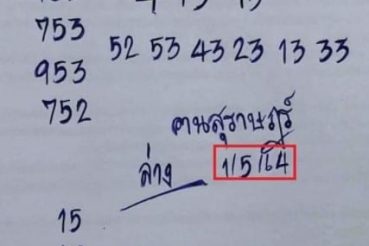 753
52 53 43 23 13 33
953
752
คนสุราษฎร์
ล่าง 1/5/64
15